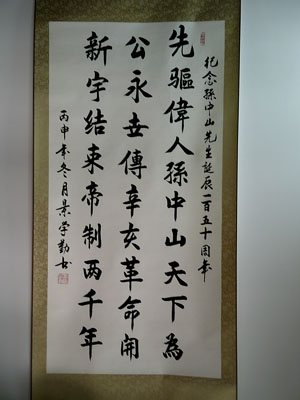 纪念孫中山先生誕辰一百五十周年
先驅偉人孫中山天下為
公永世傳辛亥革命開
新宇结束帝制两千年
丙申年冬月景学勤书